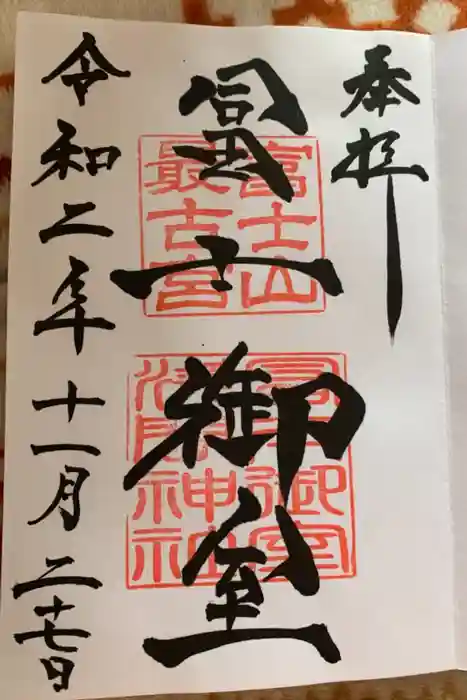 奉拝
冨士御室
富士山
最古宮
冨士御室
浅間神社
令和二年十一月二十七日